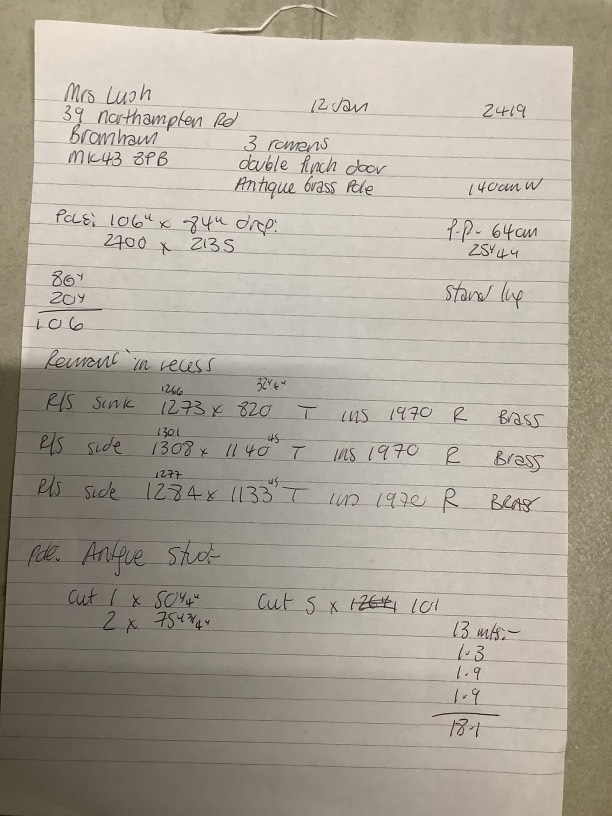 Mrs Lush
12 Jan
2419
39 Northampton Rd
Bromham
3 romans
MK43 8PB
double pinch door
Antique brass Pole
140cm W
Pole: 106" x 84" drop:
2700 x 2135
P.P- 64cm
25 1/4"
86"
20"
106
Stand Up
Romans in recess
1266
32 1/4"
R/S sink 1273 x 820 T ins 1970 R Brass
1301
45
R/S side 1308 x 1140 T ins 1970 R Brass
1277
45
R/S side 1284 x 1133 T ins 1970 R BRASS
Pole. Antique Stud-
Cut 1 x 50 1/4"
Cut 5 x 101
2 x 75 3/4"
13 mts:-
1.3
1.9
1.9
18.1